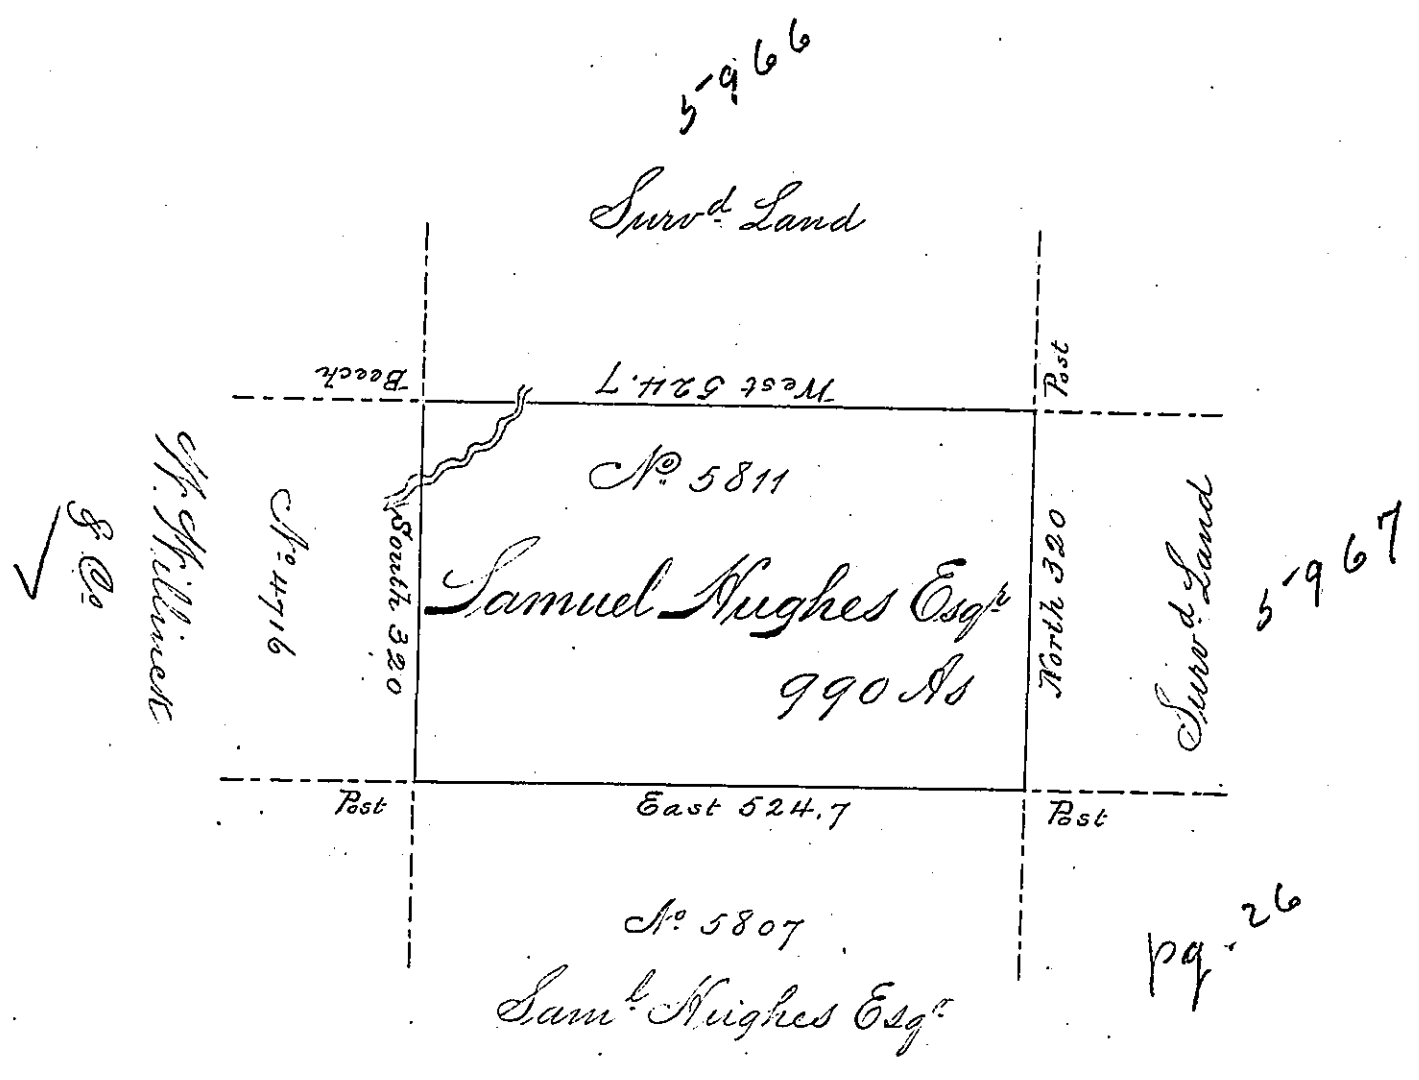 5966
Survd. Land
Beech
West 524.7
Post
No. 5811
Samuel Hughes Esqr.
990 As
South 320
North 320
No. 4716
W. Willinck
& Co.
Survd. Land
5967
Post
East 524.7
Post
No. 5807
Saml. Hughes Esqr.
pg. 26